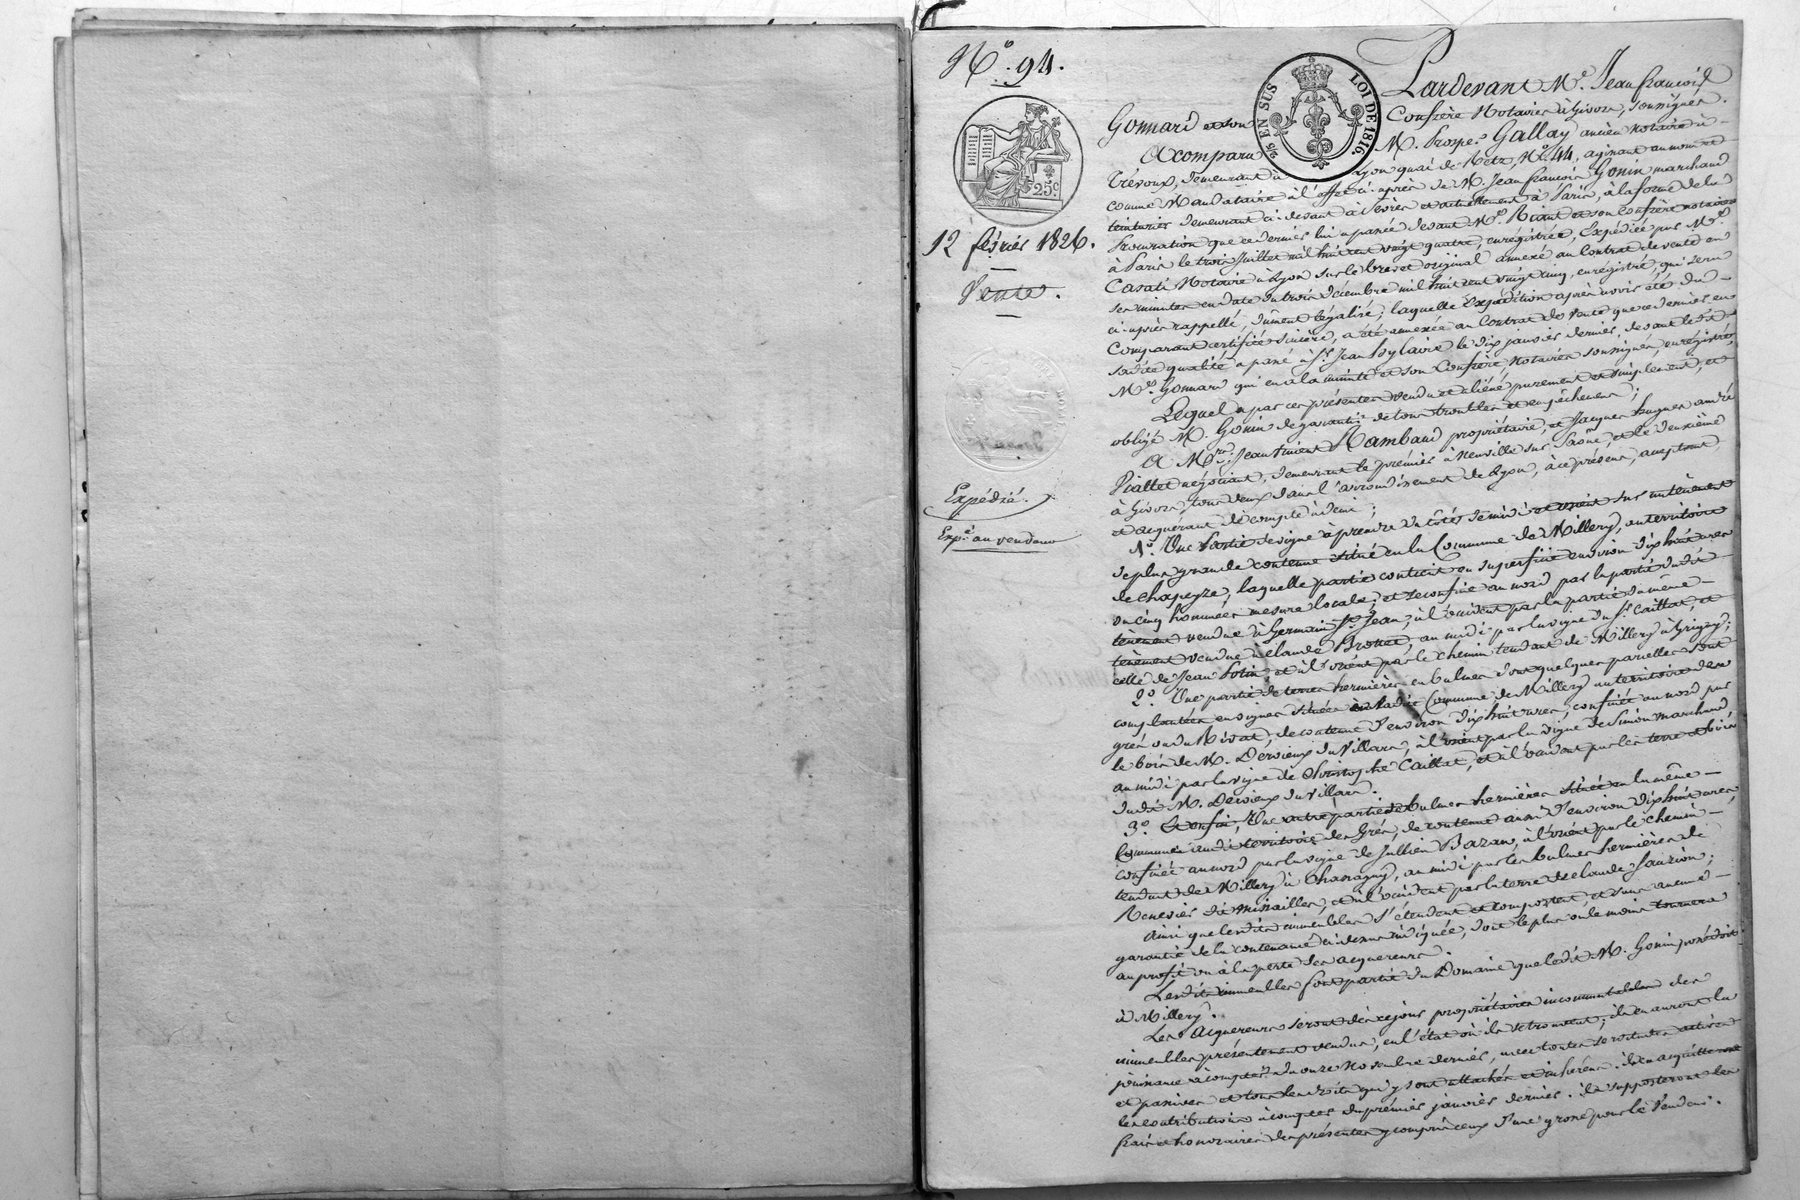 N.º 94.
25c
12 février 1826.
Vente.
Expédié.
Exp.é au vendeur
2/5 EN SUS
LOI DE 1816.
Pardevant M.e Jean françois
Gonnard et son Confrère Notaires à Givors, soussignés.
A comparu M. Prosper Gallay ancien Notaire à
Trévoux, demeurant à Lyon quai de Retz, N.º 44, agissant au nom et
comme Mandataire à l'effet ci-après de M. Jean françois Gonin marchand
teinturier demeurant ci-devant à et actuellement à Paris, à la forme de la
Procuration que ce dernier lui a passée devant M.e Riant et son confrère notaires
à Paris le trois Juillet mil huit cent vingt quatre, enregistrée, Expédiée par M.e
Casati Notaire à Lyon sur le brevet original annexé au Contrat de vente en
ses minutes en date du trois décembre mil huit cent vingt cinq, enregistré, qui sera
ci-après rappellé, dûment légalisé; laquelle Expédition après avoir été du
Comparant certifiée sincère, a été annexée au Contrat de vente que ce dernier en
sadite qualité a passé à S.r Jean hylaire le dix janvier dernier, devant ledit
M.e Gonnard qui en a la minute et son Confrère, Notaires soussignés, enregistré,
Lequel a par ces présentes vendu et aliéné purement et simplement, et
obligé M. Gonin de garantir de tous troubles et empêchemens;
A M.rs Jean Vincent Rambaud propriétaire, et Jacques hugues andré
Viallet négociant, demeurant le premier à Neuville sur Saône, et le deuxième
à Givors, tous deux dans l'arrondissement de Lyon, à ce présens, acceptant
et acquérant de compte à demi;
1.º Une Partie de vigne à prendre du côtés de midi et orient sur un tènement
de plus grande contenue situé en la Commune de Millery, au territoire
de chapeyze, laquelle partie contient en superficie environ dix huit ares
ou cinq hommées mesure locale; et se confine au nord par la partie dudit
tènement vendue à Germain S.t Jean, à l'occident par la partie du même
tènement vendue à claude Brottet, au midi par la vigne du S.r Caillat, et
celle de Jean et à l'orient par le chemin tendant de Millery à Grigny;
2.º Une partie de terres hermières en balmes dont quelques parcelles sont
complantées en vignes située en ladite Commune de Millery au territoire des
grès ou du Rivat, de contenue d'environ dix huit ares; confinée au nord par
le bois de M. Dervieux du Villars, à l'orient par la vigne de Simon marchand
au midi par la vigne de Christophe Caillat, et à l'occident par les terre et bois
dudit M. Dervieux du Villars.
3.º Et enfin, Une autre partie de balmes hermières située en la même
Commune audit territoire des Grès, de contenue aussi d'environ dix huit ares,
confinée au nord par la vigne de Jullien Bazan, à l'orient par le chemin
tendant de Millery à Chassagny, au midi par les balmes hermières de
Renevier dit missailler, et à l'occident par la terre de claude Jauzion;
Ainsi que lesdits immeubles s'étendent et comportent et sans aucune
garantie de la contenance ci-dessus indiquée, dont le plus ou le moins tournera
au profit ou à la perte des acquereurs.
Lesdits immeubles font partie du Domaine que ledit M. Gonin possédoit
à Millery.
Les Acquereurs seront dès ce jour propriétaires incommutables des
immeubles présentement vendus, en l'état où ils se trouvent; ils en auront la
jouissance à compter du onze Novembre dernier, avec toutes servitudes actives
et passives et tous les droits qui y sont attachés et inhérens: ils en acquitteront
les contributions à compter du premier janvier dernier. ils supporteront les
frais et honoraires des présentes y compris ceux d'une grosse pour le Vendeur.